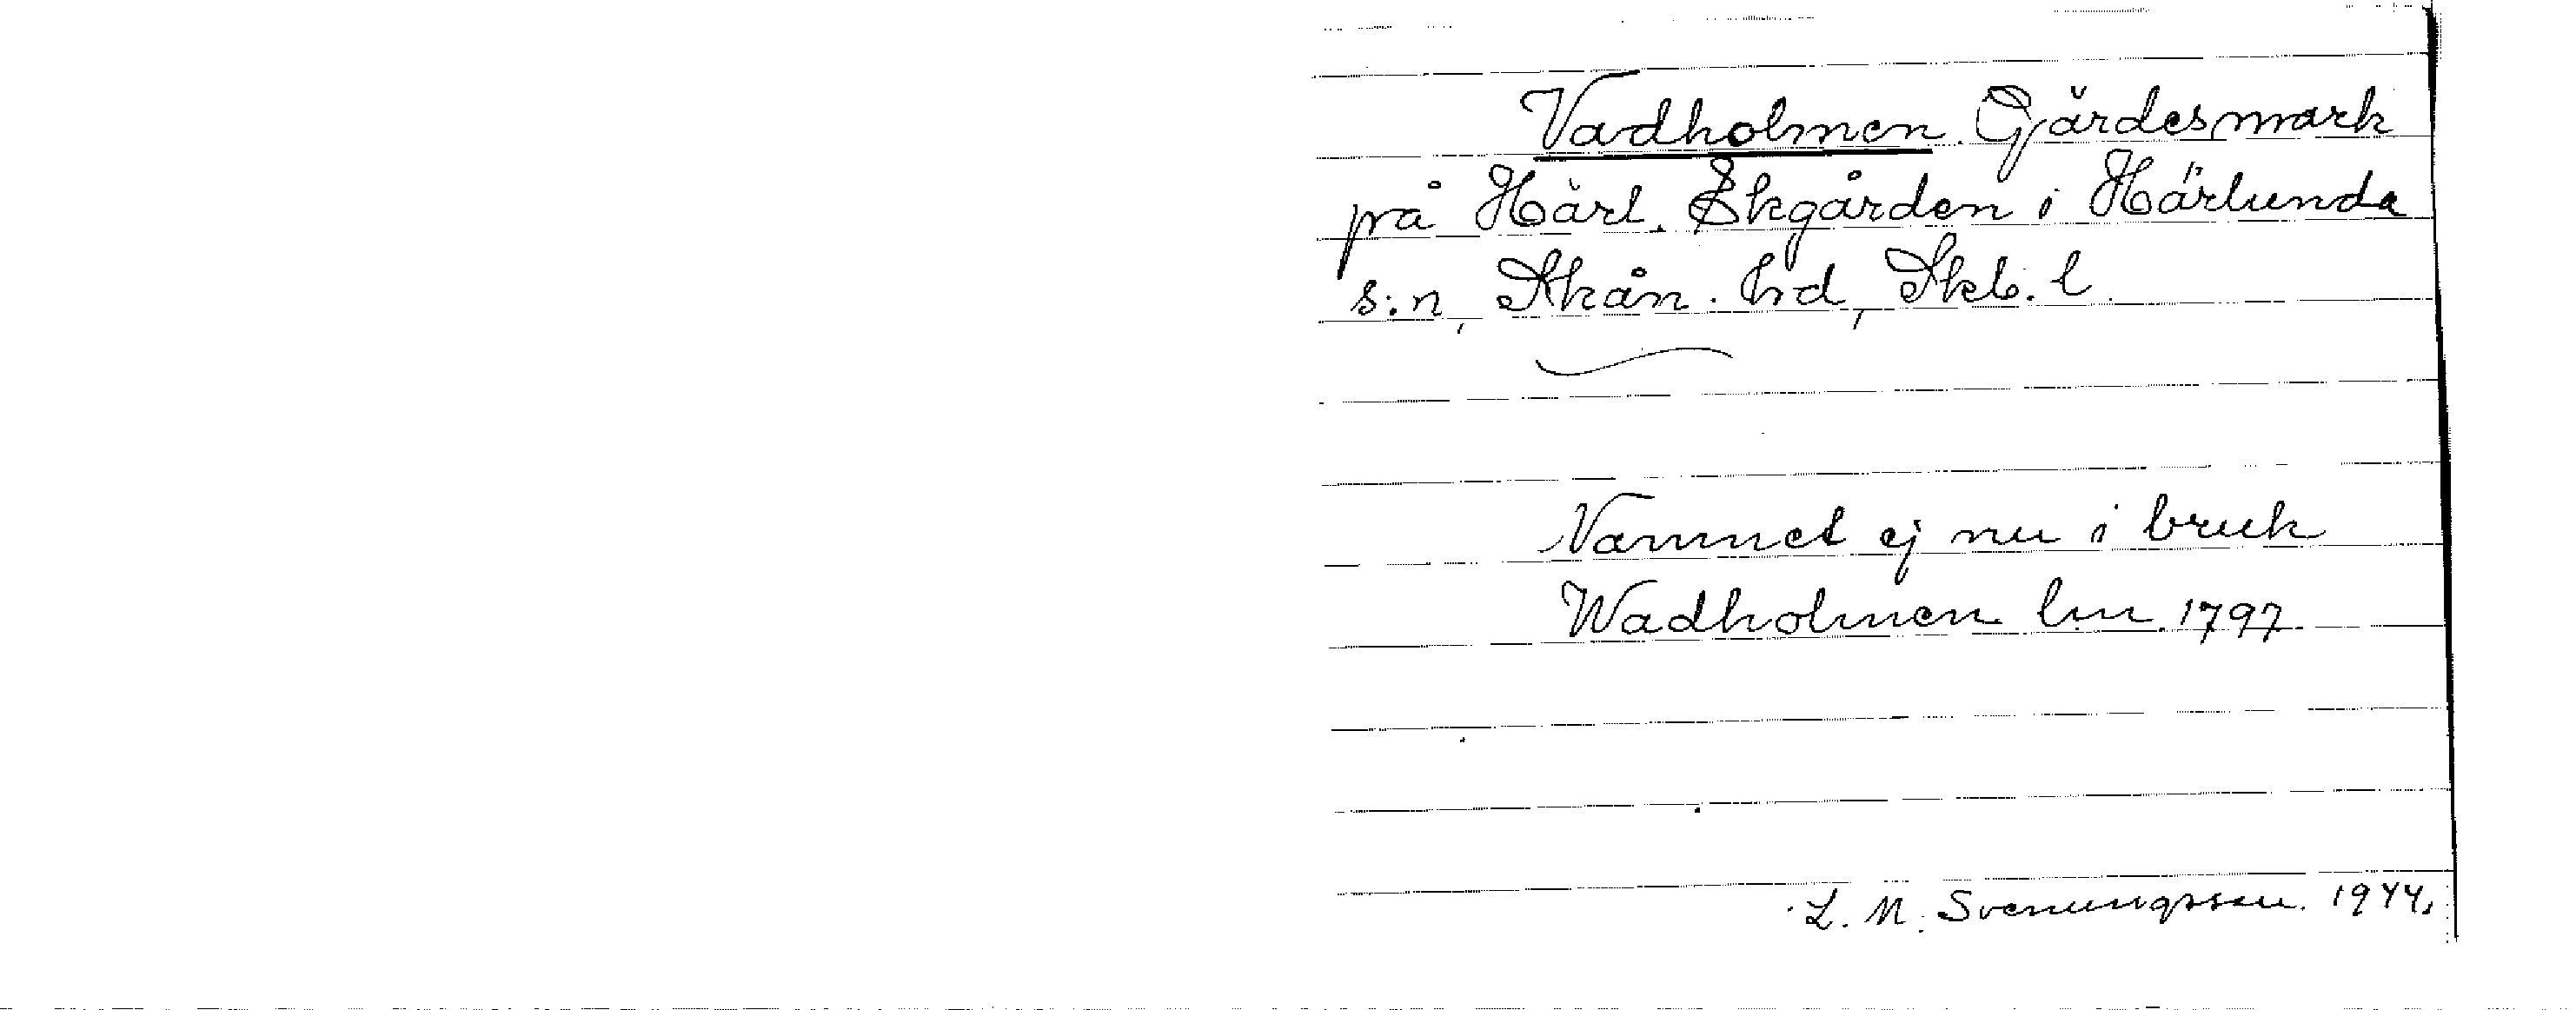 Vadholmen. Gärdesmark
på Härl. Ekgården i Härlunda
s:n, Skån. hd, Skb. l.
Namnet ej nu i bruk
Wadholmen lm 1797
L. M. Svenungsson. 1944.